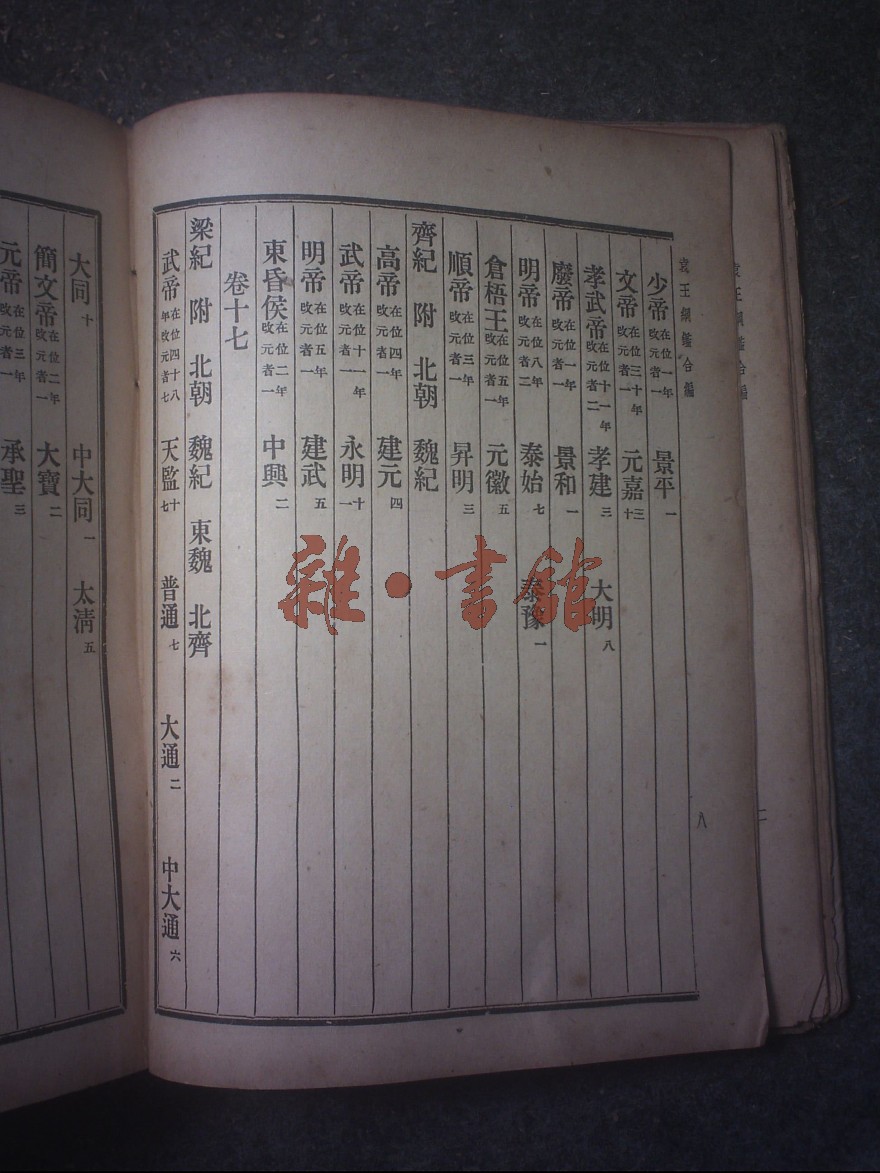 袁王綱鑑合編
八
少帝在位一年改元者一 景平一
文帝在位三十年改元者一 元嘉三十
孝武帝在位十一年改元者二 孝建三 大明八
廢帝在位一年改元者一 景和一
明帝在位八年改元者二 泰始七 泰豫一
倉梧王在位五年改元者一 元徽五
順帝在位三年改元者一 昇明三
齊紀 附 北朝 魏紀
高帝在位四年改元者一 建元四
武帝在位十一年改元者一 永明十一
明帝在位五年改元者一 建武五
東昏侯在位二年改元者一 中興二
卷十七
梁紀 附 北朝 魏紀 東魏 北齊
武帝在位四十八年改元者七 天監十七 普通七 大通二 中大通六
大同十 中大同一 太淸五
簡文帝在位二年改元者一 大寶二
元帝在位三年改元者一 承聖三
袁王綱鑑合編
雜·書館